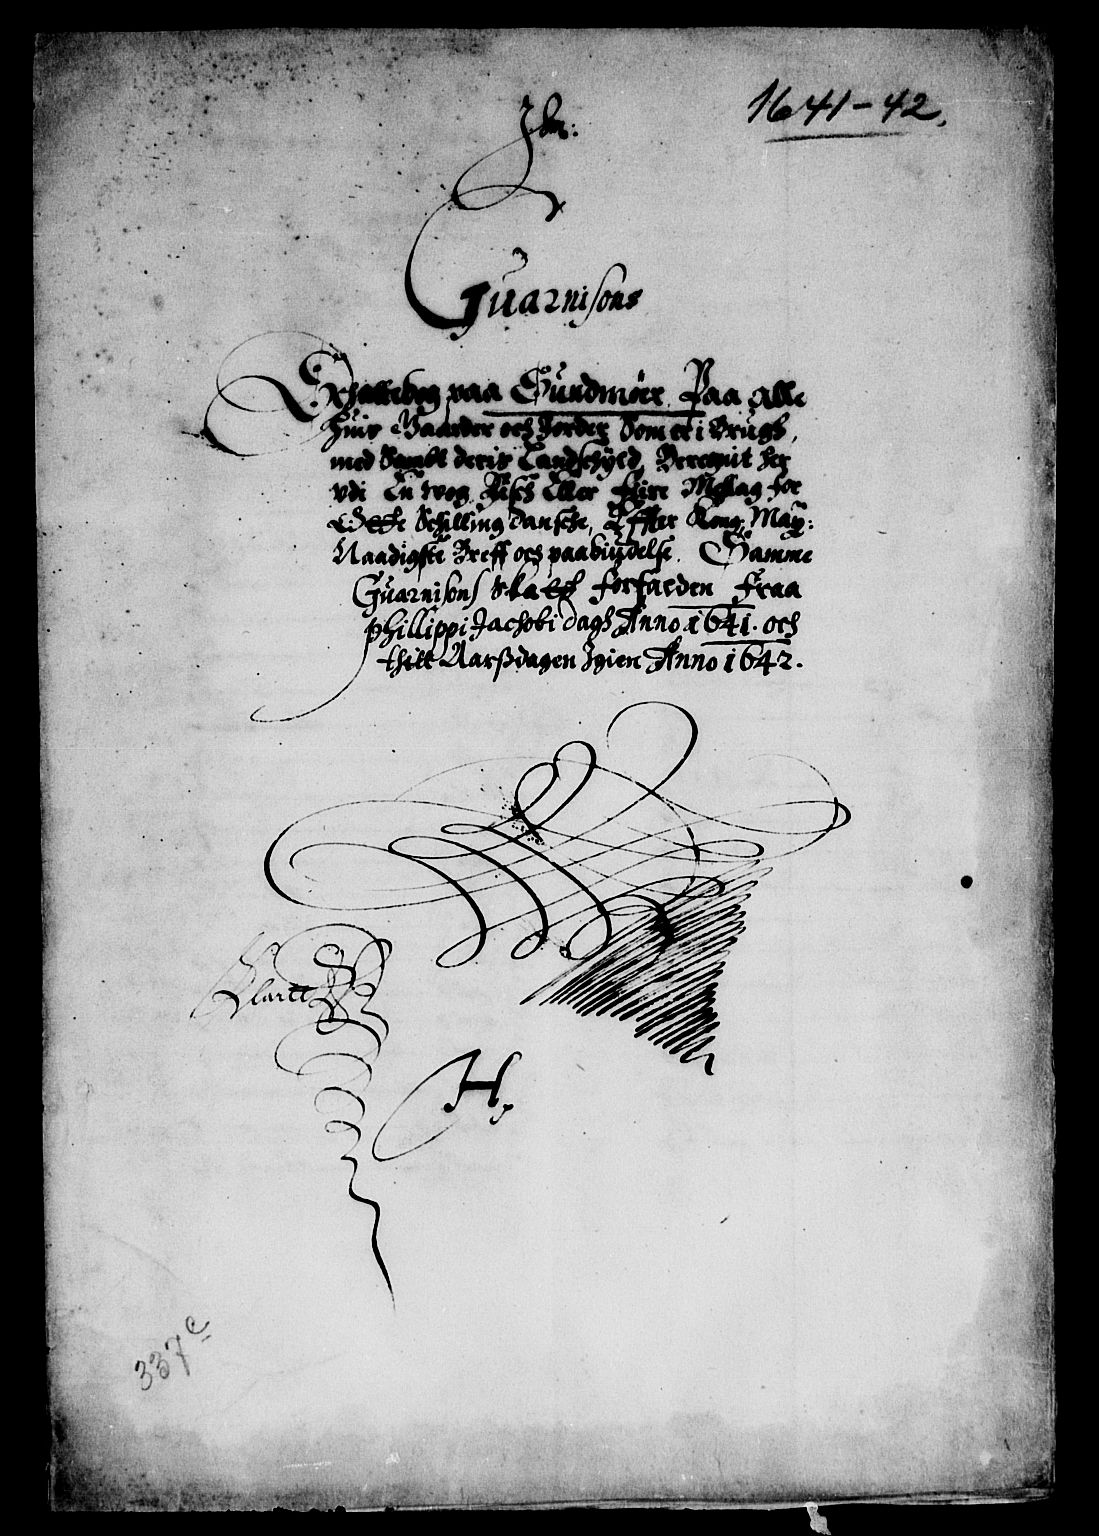 1641-42.
Guarnisons
Schattebog paa Sundmöer, Paa Alle
Huis Gaarder och Jorder Som er i Brugh,
med Sambt deris Landschyld Beregnit her
udi En wog Fisch Eller fiire Mellag for
Schilling dansche, Effter Kong: May:
Naadigste Breff och paabüdelse. Samme
Guarnisons Skatt forfalden Fraa
Phillippi Jachobi dags Anno 1641. och
thill Aarßdagen Igien Anno 1642.
Clartt
H
337c